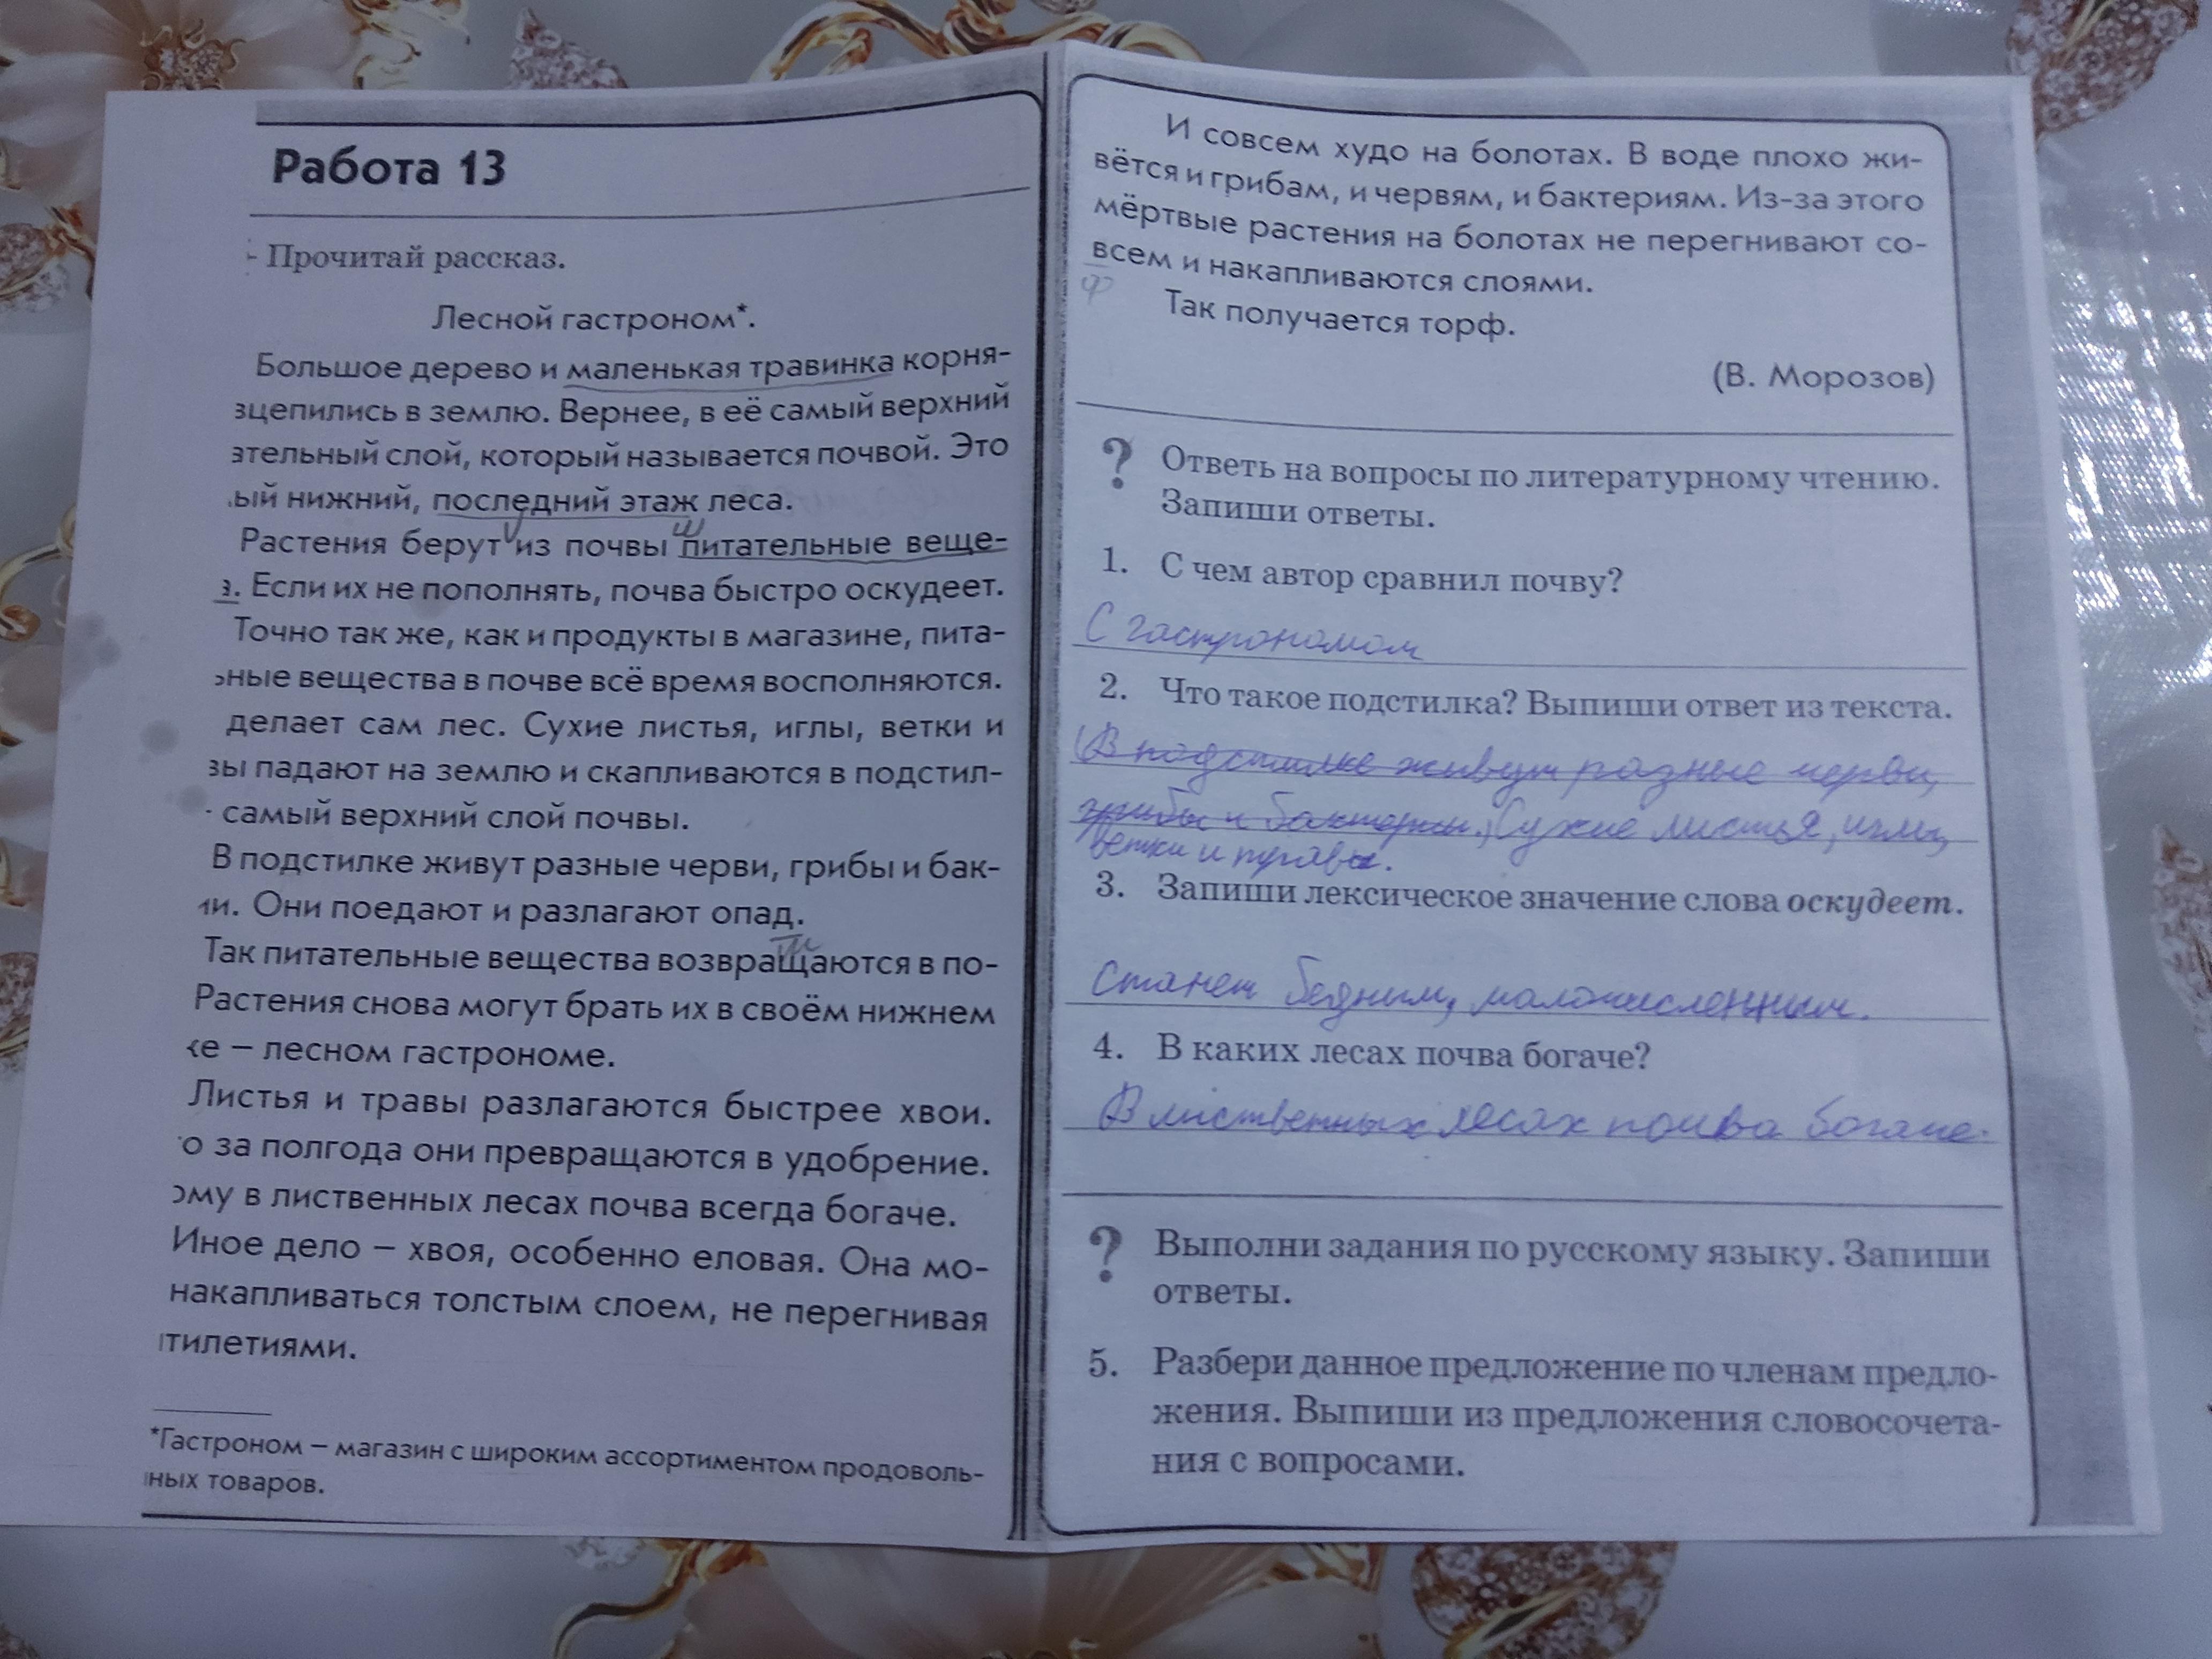 Работа 13
Прочитай рассказ.
Лесной гастроном*.
Большое дерево и маленькая травинка корня-
зцепились в землю. Вернее, в её самый верхний
ательный слой, который называется почвой. Это
ый нижний, последний этаж леса.
Растения берут из почвы питательные веще-
а. Если их не пополнять, почва быстро оскудеет.
Точно так же, как и продукты в магазине, пита-
ьные вещества в почве всё время восполняются.
делает сам лес. Сухие листья, иглы, ветки и
вы падают на землю и скапливаются в подстил-
- самый верхний слой почвы.
В подстилке живут разные черви, грибы и бак-
ии. Они поедают и разлагают опад.
Так питательные вещества возвращаются в по-
Растения снова могут брать их в своём нижнем
же – лесном гастрономе.
Листья и травы разлагаются быстрее хвои.
о за полгода они превращаются в удобрение.
ому в лиственных лесах почва всегда богаче.
Иное дело – хвоя, особенно еловая. Она мо-
накапливаться толстым слоем, не перегнивая
тилетиями.
*Гастроном – магазин с широким ассортиментом продоволь-
ных товаров.
И совсем худо на болотах. В воде плохо жи-
вётся и грибам, и червям, и бактериям. Из-за этого
мёртвые растения на болотах не перегнивают со-
всем и накапливаются слоями.
Так получается торф.
(В. Морозов)
? Ответь на вопросы по литературному чтению.
Запиши ответы.
1. С чем автор сравнил почву?
С гастрономом
2. Что такое подстилка? Выпиши ответ из текста.
(В подстилке живут разные черви,
грибы и бактерии.) Сухие листья, иглы,
ветки и травы.
3. Запиши лексическое значение слова оскудеет.
Станет бедным, малочисленным.
4. В каких лесах почва богаче?
В лиственных лесах почва богаче.
? Выполни задания по русскому языку. Запиши
ответы.
5. Разбери данное предложение по членам предло-
жения. Выпиши из предложения словосочета-
ния с вопросами.